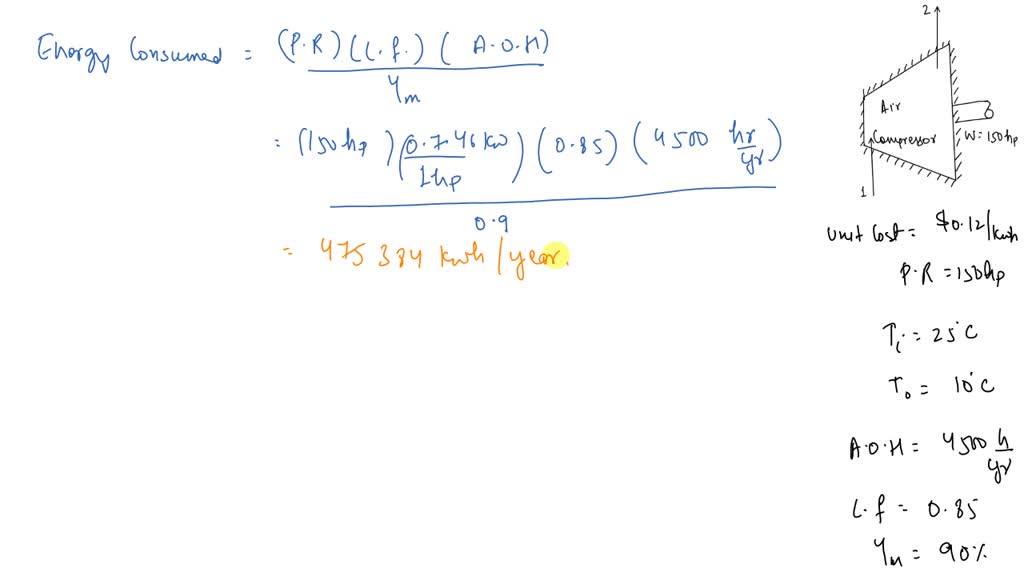 Energy Consumed = (P.R) (L.f.) (A.O.H)
ηm
= (150hp) (0.746 kw) (0.85) (4500 hr)
1hp yr
0.9
= 475 384 kwh / year.
2
Air
Compressor
W = 150hp
1
Unit Cost = $0.12/kwh
P.R = 150hp
Ti = 25°C
To = 10°C
A.O.H = 4500 h
yr
L.f = 0.85
ηm = 90%